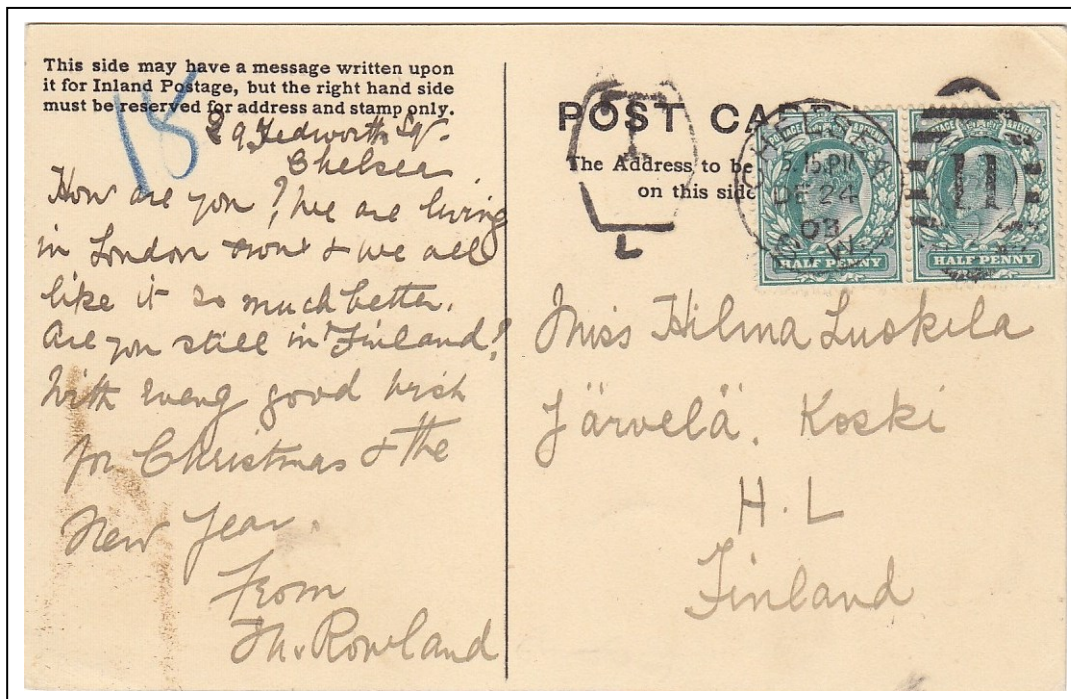 This side may have a message written upon
it for Inland Postage, but the right hand side
must be reserved for address and stamp only.
18
29 Tedworth Sq.
Chelsea
How are you? We are living
in London now & we all
like it so much better.
Are you still in Finland?
With every good wish
for Christmas & the
New Year.
From
Rowland
POST CARD
The Address to be
on this side
T
L
CHELSEA
5.15 PM
DE 24
03
S.W.
11
POSTAGE & REVENUE
HALF PENNY
POSTAGE & REVENUE
HALF PENNY
Miss Hilma Luskila
Järvelä. Koski
H.L
Finland